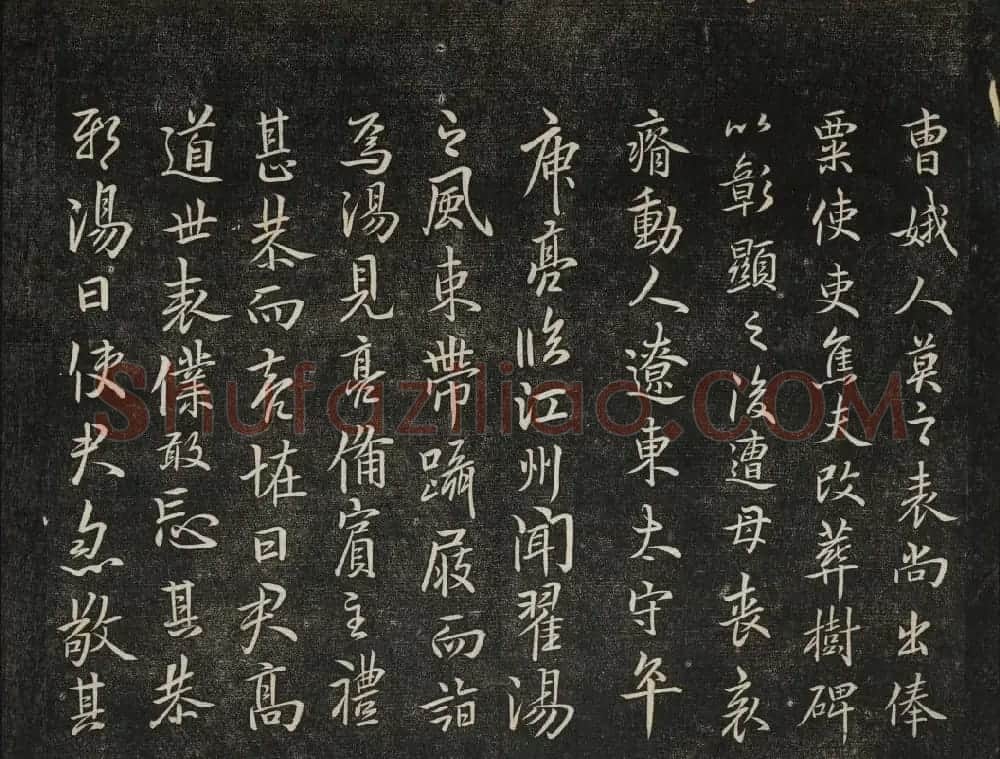 曹娥人莫之表尚出俸
粟使吏焦夫改葬樹碑
以彰顯之後遭母喪哀
瘠動人遼東太守卒
庾亮臨江州聞翟湯
之風束帶躡屐而詣
焉湯見亮備賓主禮
甚恭而亮恠曰君高
道世表僕敢忘其恭
邪湯曰使君敬其
Shufaziliao.COM